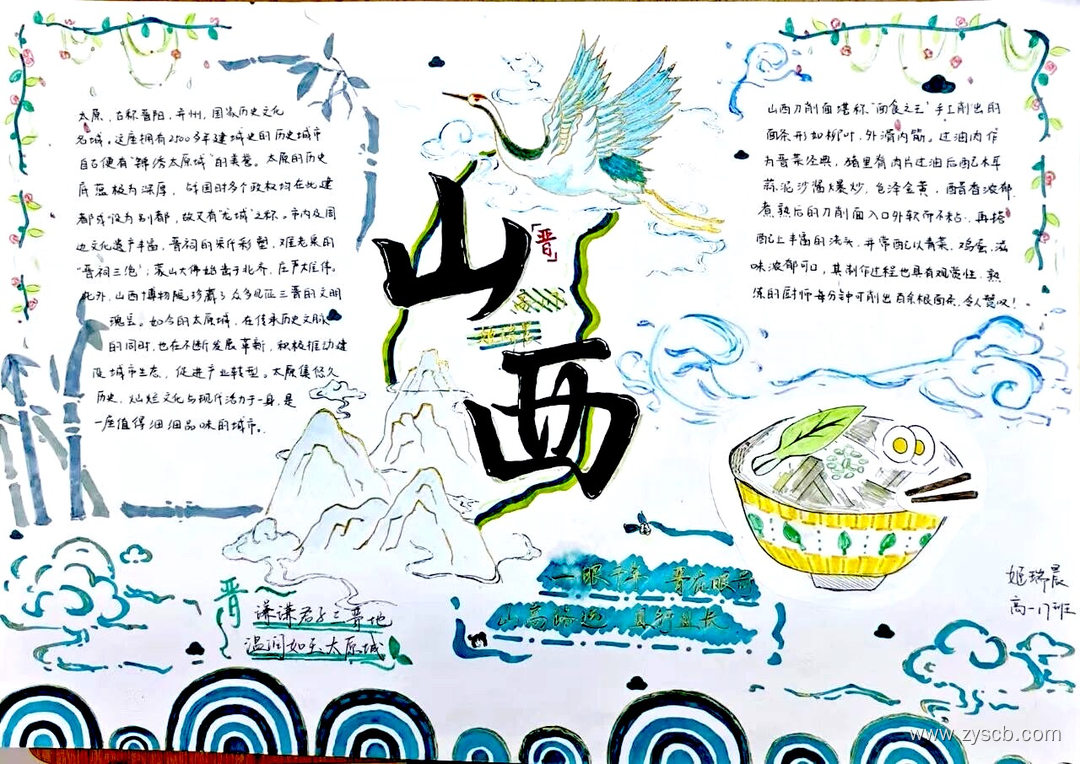 太原，古称晋阳，并州，国家历史文化
名城。这座拥有2500多年建城史的历史城市
自古便有“锦绣太原城”的美誉。太原的历史
底蕴极为深厚，战国时多个政权均在此建
都或设为别都，故又有“龙城”之称。市内及周
边文化遗产丰富，晋祠的宋代彩塑，难老泉的
“晋祠三绝”；蒙山大佛始凿于北齐，庄严雄伟。
此外，山西博物院珍藏了众多见证三晋的文明
瑰宝。如今的太原城，在传承历史文脉
的同时，也在不断发展革新，积极推动建
设城市生态，促进产业转型。太原集悠久
历史，灿烂文化与现代活力于一身，是
一座值得细细品味的城市。
山西
「晋」
山西刀削面堪称“面食之王”手工削出的
面条形如柳叶，外滑内筋。过油肉作
为晋菜经典，猪里脊肉片过油后配木耳
蒜泥沙酱爆炒，色泽金黄，醋香浓郁
煮熟后的刀削面入口外软而不粘，再搭
配上丰富的浇头，并常配以青菜，鸡蛋，滋
味浓郁可口，其制作过程也具有观赏性，熟
练的厨师每分钟可削出百余根面条，令人赞叹！
一眼千年 晋在眼前
山高路远 且行且长
晋
谦谦君子三晋地
温润如玉太原城
姬瑞晨
高一17班
www.zyscb.com